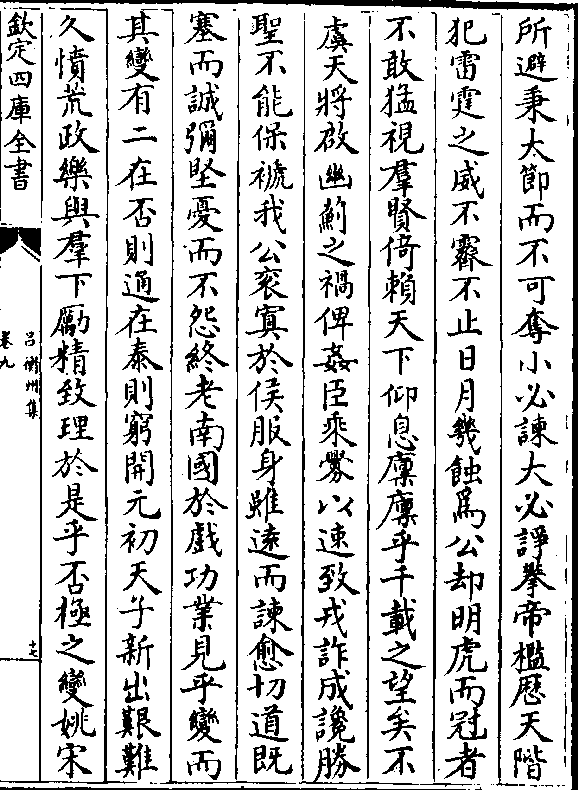 所避秉太節而不可奪小必諫大必諍攀帝檻歷天階
犯雷霆之威不霽不止日月幾蝕爲公却明虎而冠者
不敢猛視羣賢倚賴天下仰息廩廩乎千載之望矣不
虞天將啟幽薊之禍俾姦臣乘釁以速致戎詐成讒勝
聖不能保褫我公衮寘於侯服身雖遠而諫愈切道既
塞而誠彌堅憂而不怨終老南國於戲功業見乎變而
其變有二在否則通在泰則窮開元初天子新出艱難
久憤荒政樂與羣下勵精致理於是乎否極之變姚宋
欽定四庫全書
呂衡州集
卷九
十七